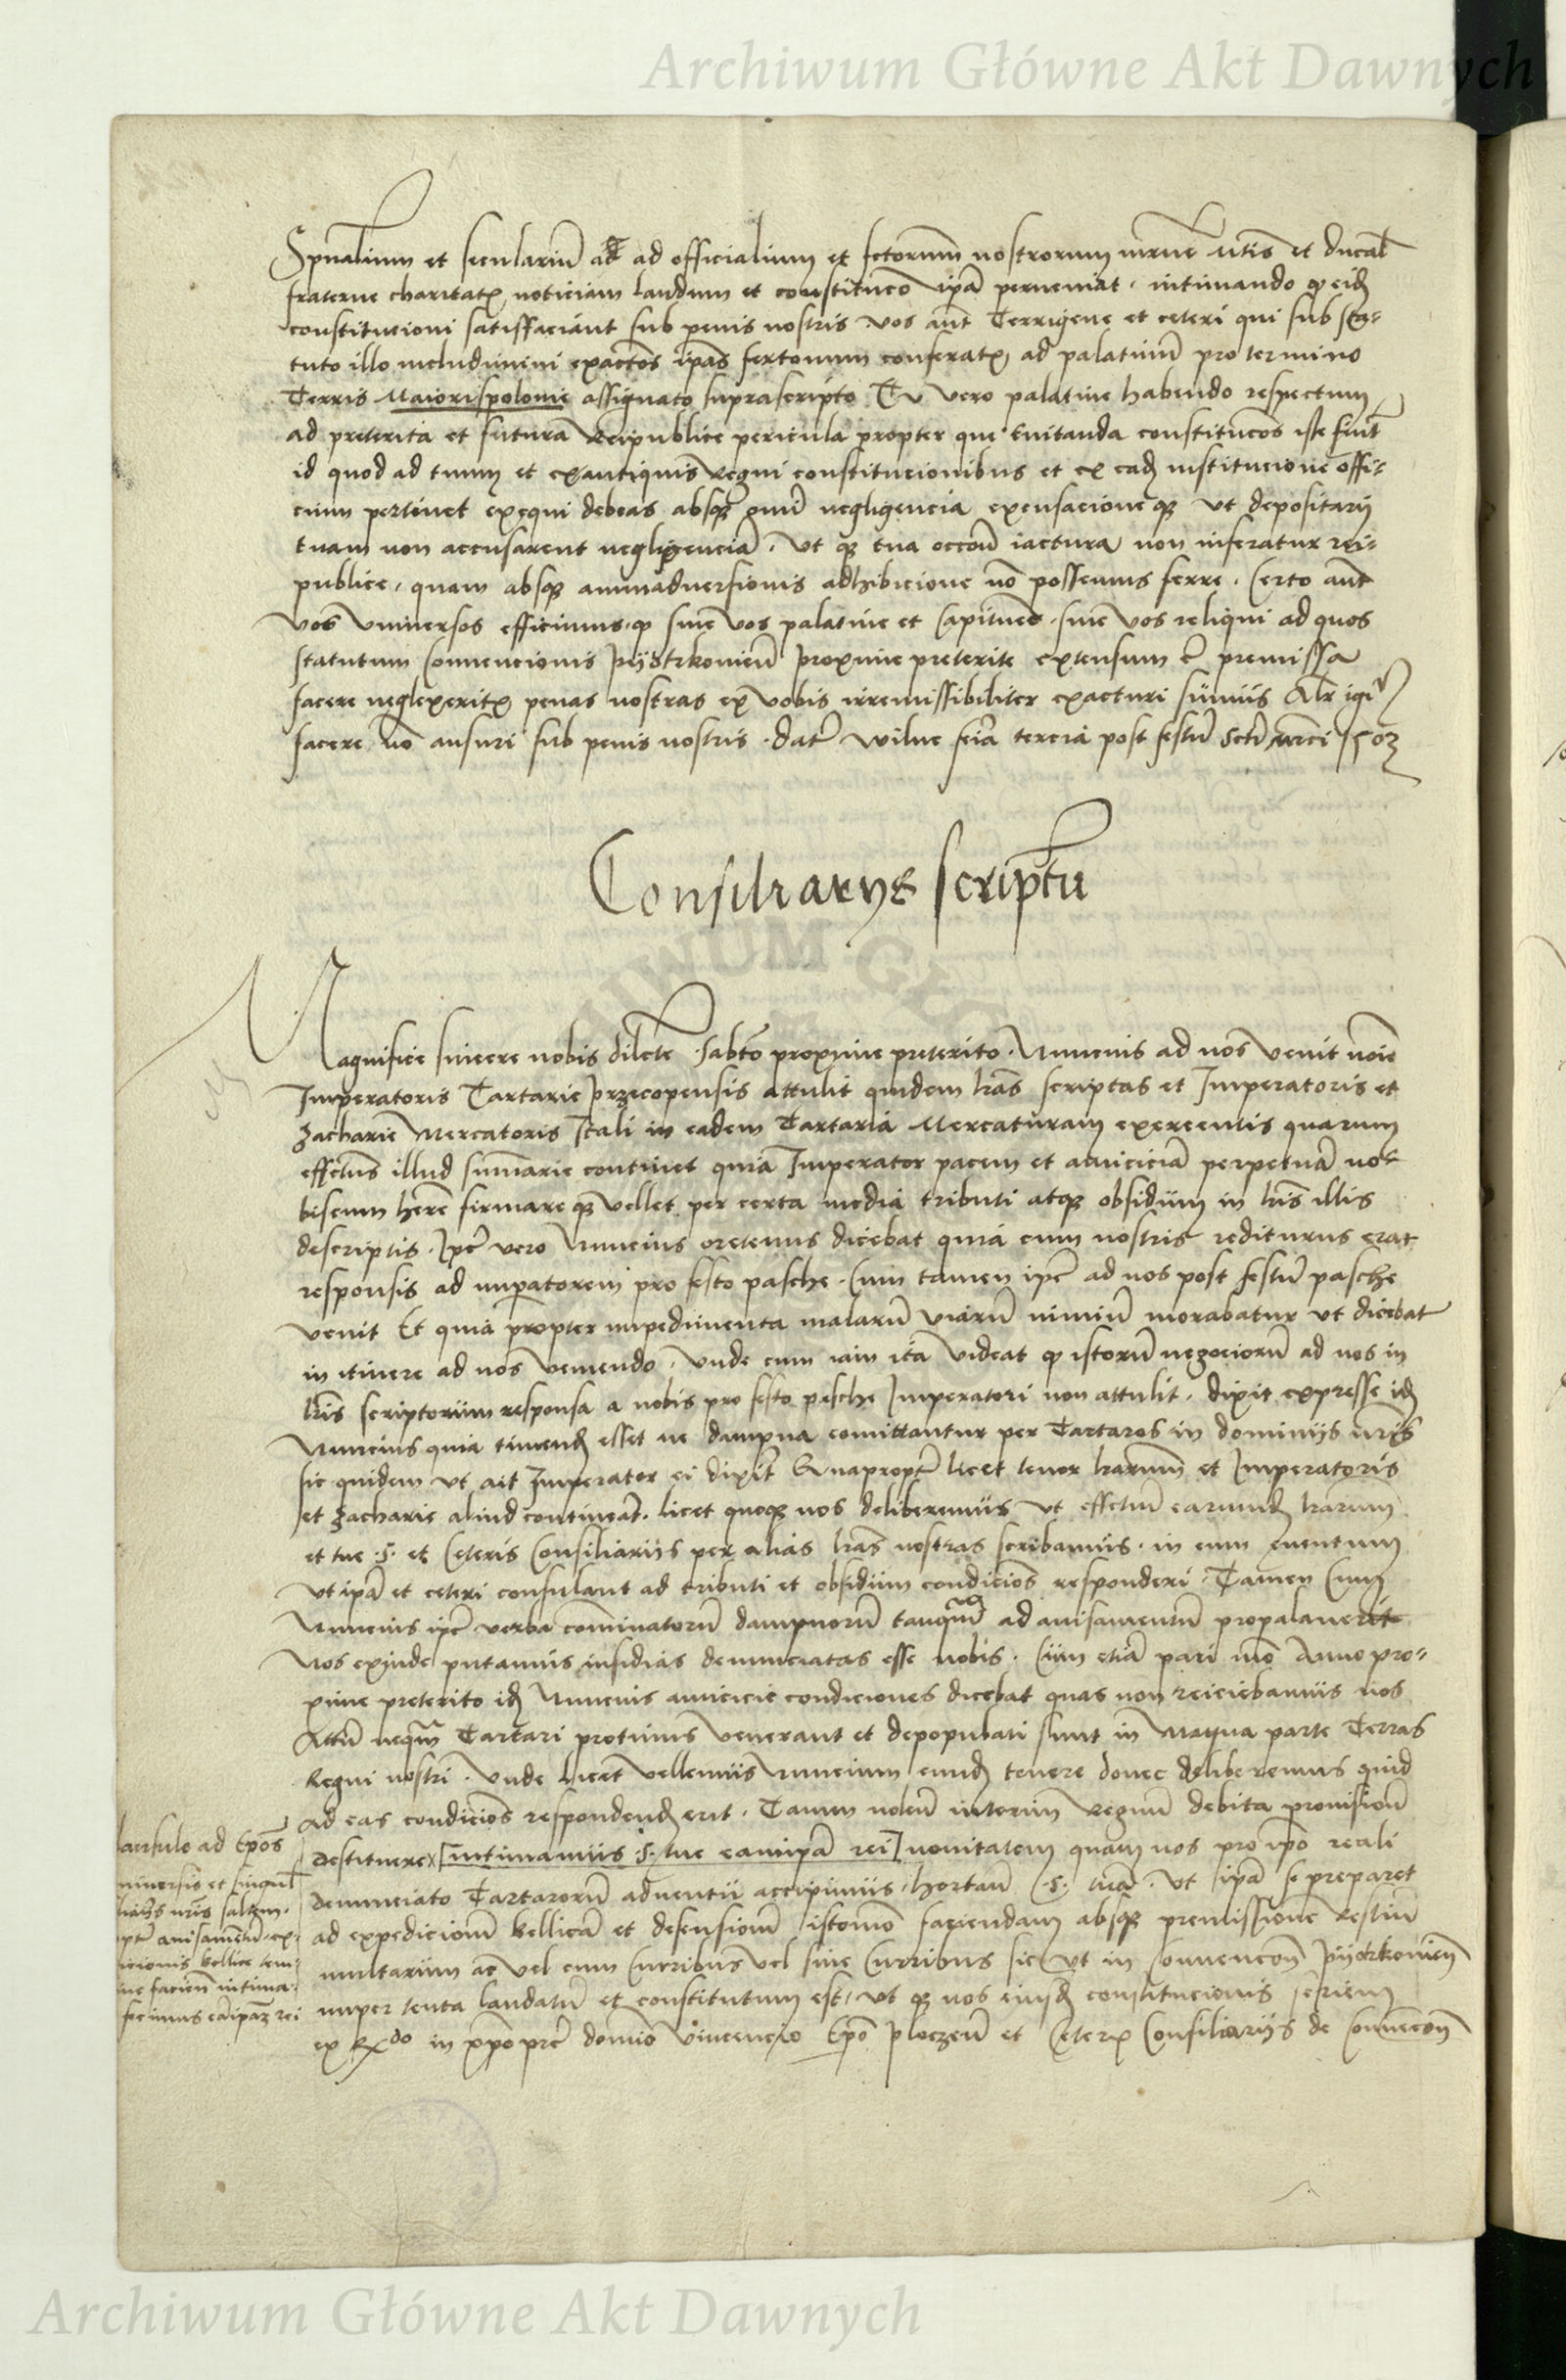 Archiwum Główne Akt Dawnych
Spūalium et seculariū ad officialium et fctorum nostrorum et ducal
fraterne charitatꝭ noticiam laudum et constitucō ipā perveniat. intimando ꝙ eidꝫ
constitucioni satisfaciant sub penis nostris vos aūt Terrigene et ceteri qui sub sta-
tuto illo includimini exactōs ipās fertonum conferatꝭ ad palatinū pro termino
Terris Maiorispolonie assignato suprascripto Tu vero palatine habendo respectum
ad preterita et futura Reipublice pericula propter que evitanda constitucōs iste fiūt
id quod ad tuum et ex antiquis Regni constitucionibus et ex eadꝫ institucione offi-
cium pertinet exequi debeas absqꝫ omī negligencia excusacioneqꝫ ut depositarij
tuam non accusarent negligenciā. ut qꝫ tua occōne iactura non inferatur rei-
publice. quam absqꝫ animadversionis adhibicione nō possemus ferre. Certo aūt
vos universos efficimus. ꝙ sive vos palatine et Capitanee. sive vos reliqui ad quos
statutum Convencionis Pijotrkovieñ proxime preterite extensum ē premissa
facere neglexeritꝭ penas nostras ex vobis irremissibiliter exacturi sumus Alr igit
facere nō ausuri sub penis nostris. Datꝭ Wilne feria tercia post festū Scti Marci 1503
Consiliarijs scriptū
Magnifice sincere nobis dilecte. Sabto proxime preterito. Nuncius ad nos venit noīe
Imperatoris Tartarie Przecopensis attulit quidem lras scriptas et Imperatoris et
Zacharie Mercatoris Itali in eadem Tartaria Mercaturam exercentis quarum
effectus illud summarie continet quia Imperator pacem et amiciciā perpetuā no-
biscum hēre firmareqꝫ vellet per certa media tributi atqꝫ obsidum in lris illis
descriptis. Ipe vero Nuncius oretenus dicebat quia cum nostris rediturus erat
responsis ad imperatorem pro festo pasche. Cum tamen ipe ad nos post festū pasche
venit Et quia propter impedimenta malarū viarū nimiū morabatur ut dicebat
in itinere ad nos veniendo. unde cum iam ita videat ꝙ istorū negociorū ad nos in
lris scriptorum responsa a nobis pro festo pasche Imperatori non attulit. dixit expresse idꝫ
Nuncius quia timendꝫ esset ne dampna comittantur per Tartaros in dominijs nris
sic quidem ut ait Imperator ei dixit Quapropter licet tenor lrarum et Imperatoris
et Zacharie aliud contineat. licet quoqꝫ nos deliberemus ut effectū earundꝫ lrarum
et tue .S. et Ceteris Consiliarijs per alias lras nostras scribamus. in eum eventum
ut ipā et ceteri consulant ad tributi et obsidum condiciōs responderi. Tamen Cum
Nuncius ipe verba comminatorū dampnorū tanquā ad avisamentū propalaverit
Nos exinde putamus insidias denunciatas esse nobis. Cum etiā pari mō Anno pro-
xime preterito idꝫ Nuncius amicicie condiciones dicebat quas non reiciebamus nos
Attū Tartari protinus venerant et depopulati sunt in Magna parte Terras
Regni nostri. Unde licet vellemus Nuncium eundꝫ tenere donec deliberemus quid
ad eas condiciōs respondendꝫ erit. Tamen nolētes interim Regnū debita provisione
destituere [intimamus S. tue eam ipā rei] novitatem quam nos pro ipo reali
denunciato Tartarorū adventu accipimus. hortañ .S. tuā. ut ipā se preparet
ad expedicionē bellicā et defensionē istomō faciendam absqꝫ premissione Restiū
multarum ac vel cum Curribus vel sine Curribus sic ut in Convencōn Pijotrkovieñ
nuper tenta laudatū et constitutum est. ut qꝫ nos eiusdꝫ constitucionis seriem
ex Rdo in xpo pre domino Vincencio Epo ploczeñ et Ceterꝭ Consiliarijs de Convencōn
clausulo ad Epōs
universis et singul
liarijs nris saltem
pter avisamentū ex-
dicionis bellice tem-
ne facieñ intima-
fecimus eā ipaꝫ rei
Archiwum Główne Akt Dawnych